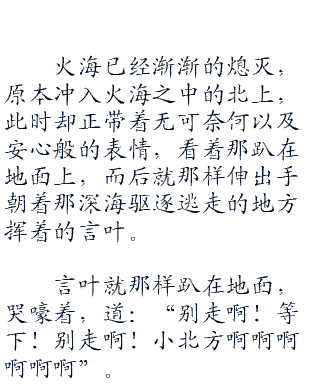 火海已经渐渐的熄灭，
原本冲入火海之中的北上，
此时却正带着无可奈何以及
安心般的表情，看着那趴在
地面上，而后就那样伸出手
朝着那深海驱逐逃走的地方
挥着的言叶。
言叶就那样趴在地面，
哭嚎着，道：“别走啊！等
下！别走啊！小北方啊啊啊
啊啊啊”。